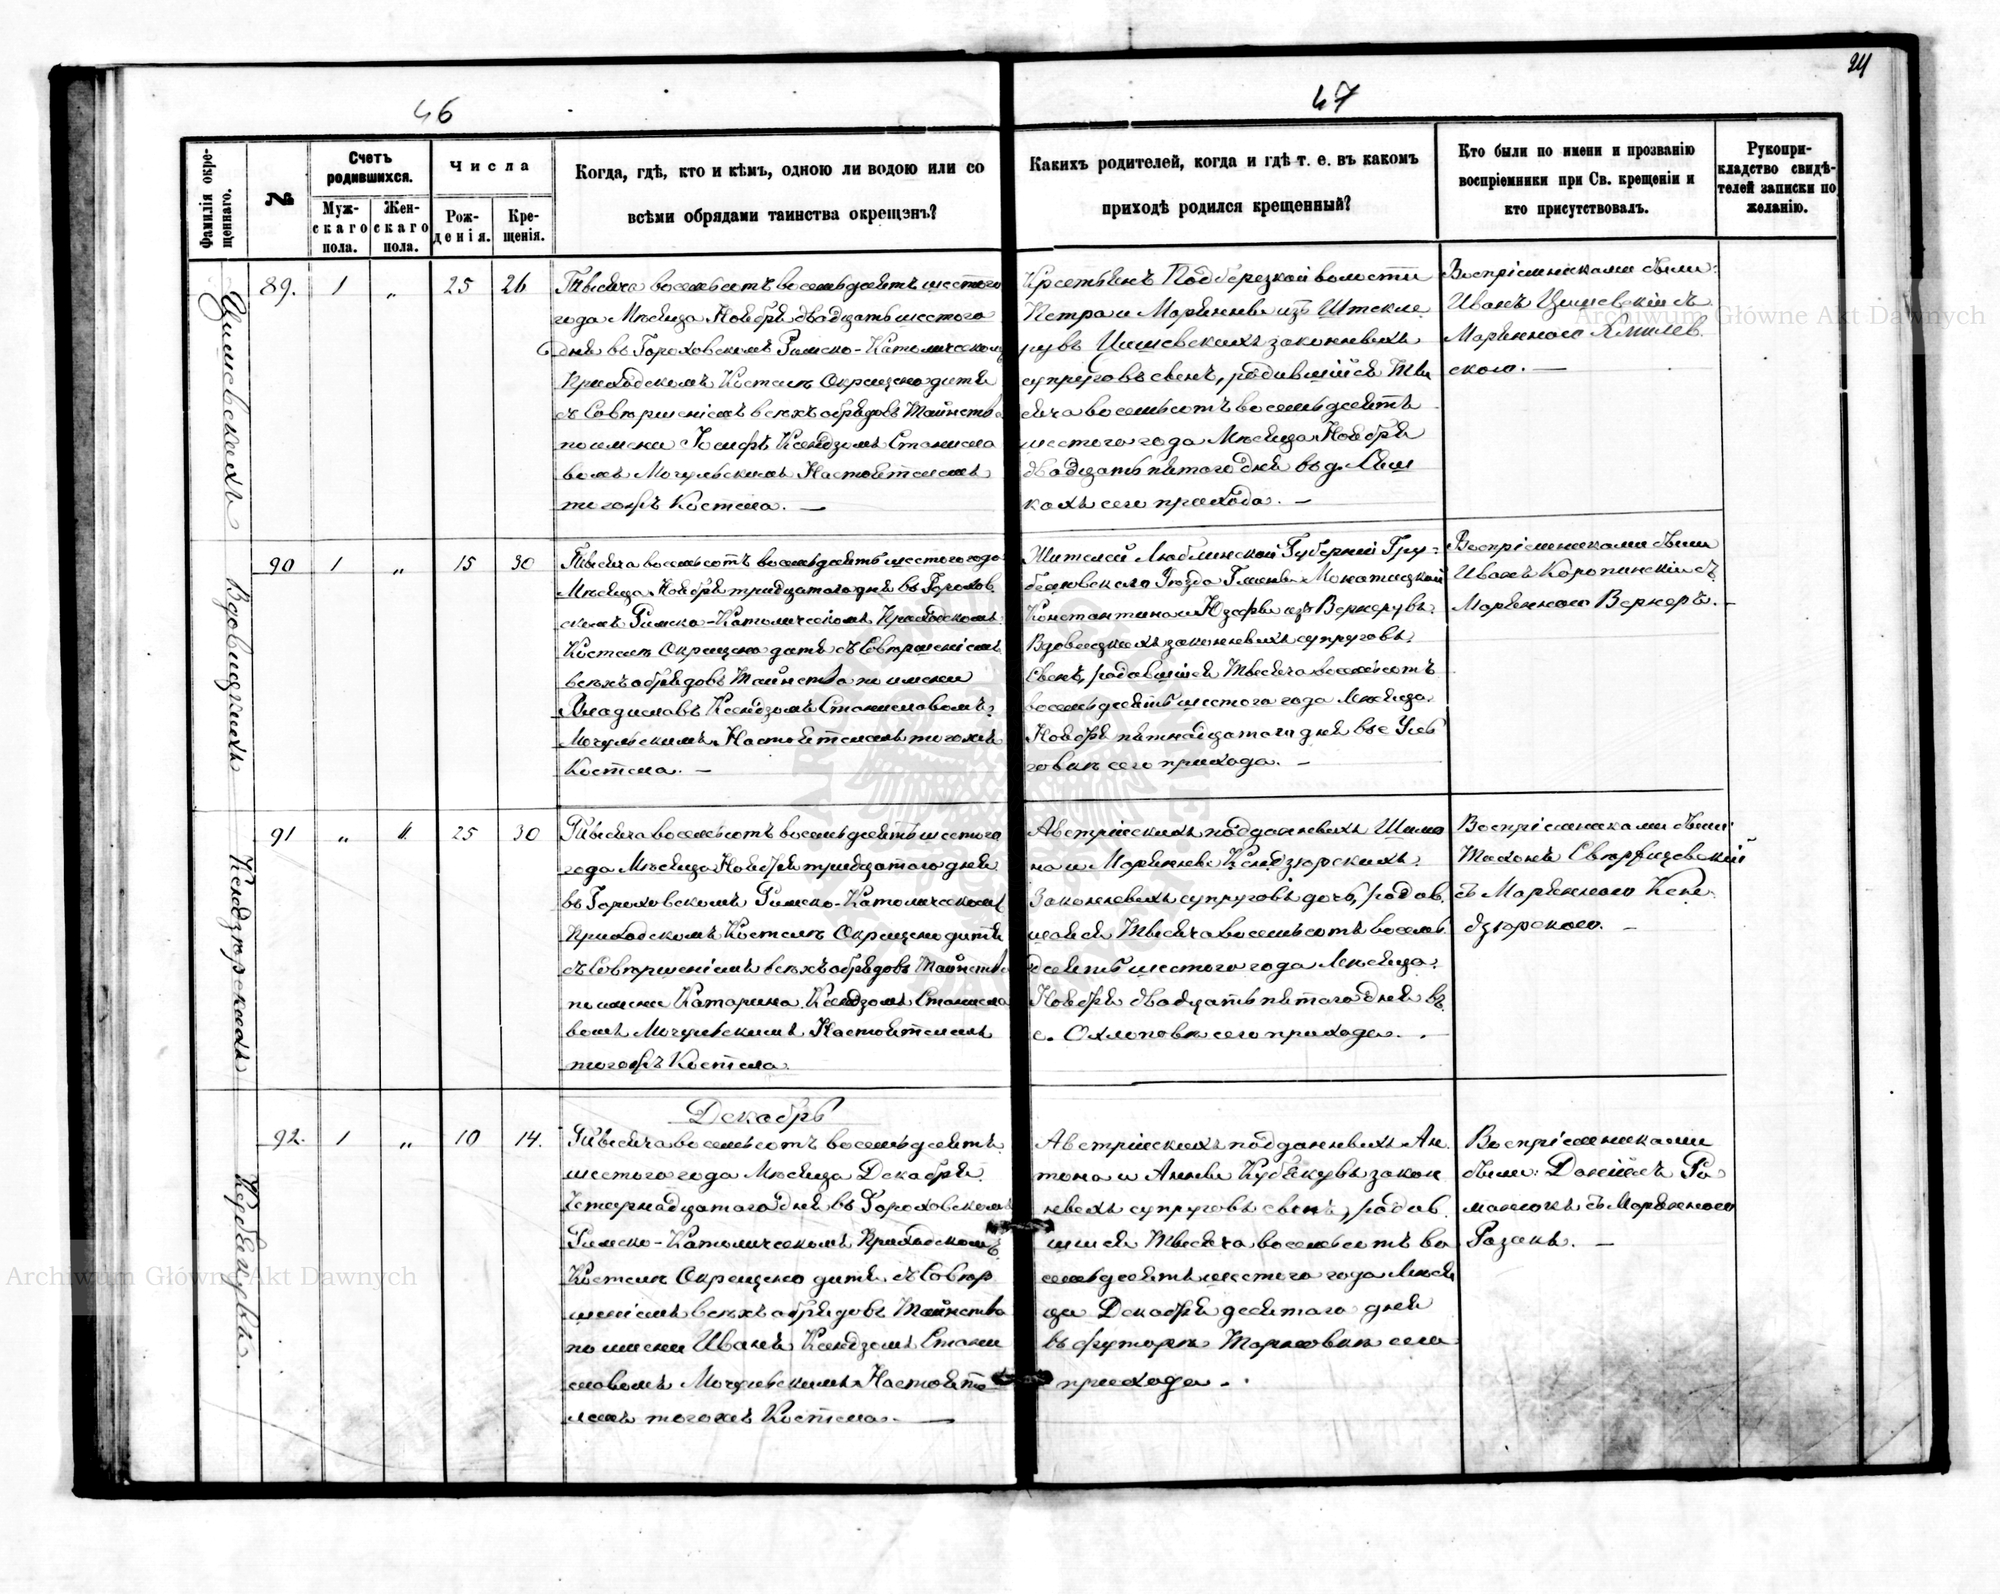 24
46
47
Фамилія окре-
щеннаго.
№
Счетъ
родившихся.
Муж-
скаго
пола.
Жен-
скаго
пола.
Числа
Рож-
денія.
Кре-
щенія.
Когда, гдѣ, кто и кѣмъ, одною ли водою или со
всѣми обрядами таинства окрещэнъ?
Какихъ родителей, когда и гдѣ т. е. въ какомъ
приходѣ родился крещенный?
Кто были по имени и прозванію
воспріемники при Св. крещеніи и
кто присутствовалъ.
Рукопри-
кладство свидѣ-
телей записки по
желанію.
89. 1 „ 25 26
Тысяча восемьсотъ восемьдесятъ шестого
года Мѣсяца Ноября двадцать шестого
дня въ Гороховскомъ Римско-Католическомъ
Приходскомъ Костелѣ Окрещено дитя
съ Совершеніемъ всѣхъ обрядовъ Таинства
по имени Іосифъ Ксендзомъ Станисла
вомъ Мочульскимъ Настоятелемъ
тогожъ Костела. —
Крестьянъ Подберезкой волости
Петра и Марянны изъ
Цишевскихъ законныхъ
супруговъ сынъ, родившійся Ты
сяча восемьсотъ восемьдесятъ
шестого года Мѣсяца Ноября
двадцать пятого дня въ д.
кахъ сего прихода. —
Воспріемниками были:
Иванъ Цишевскій съ
Марянною
скою. —
90 1 „ 15 30
Вдовицкихъ
Тысяча восемьсотъ восемьдесятъ шестого года
Мѣсяца Ноября тридцатого дня въ Горохов
скомъ Римско-Католическомъ Приходскомъ
Костелѣ Окрещено дитя съ Совершеніемъ
всѣхъ обрядовъ Таинства по имени
Владиславъ Ксендзомъ Станиславомъ
Мочульскимъ Настоятелемъ тогожъ
Костела. —
Жителей Люблинской Губерніи Гру-
бешовскаго Уѣзда Гмины
Константина и Юзефы изъ Веркеровъ
Вдовицкихъ законныхъ супруговъ
Сынъ, родившійся Тысяча восемьсотъ
восемьдесятъ шестого года Мѣсяца
Ноября пятнадцатого дня въ с
сего прихода. —
Воспріемниками были
Иванъ Коропинскій съ
Марянною Веркеръ. —
91 „ 11 25 30
Кендзюрскихъ
Тысяча восемьсотъ восемьдесятъ шестого
года Мѣсяца Ноября тридцатого дня
въ Гороховскомъ Римско-Католическомъ
Приходскомъ Костелѣ Окрещено дитя
съ Совершеніемъ всѣхъ обрядовъ Таинства
по имени Катарина Ксендзомъ Станисла
вомъ Мочульскимъ Настоятелемъ
тогожъ Костела
Австрійскихъ подданныхъ Шимо
на и Марянны Кендзюрскихъ
Законныхъ супруговъ дочь, родив
шаяся Тысяча восемьсотъ восемь
десятъ шестого года Мѣсяца
Ноября двадцать пятого дня въ
с. Охлоповѣ сего прихода. .
Воспріемниками были:
съ Марянною Кен
дзюрскою. —
Декабрь
92. 1 „ 10 14.
Кубякувъ.
Тысяча восемьсотъ восемьдесятъ
шестого года Мѣсяца Декабря
Четырнадцатого дня въ Гороховскомъ
Римско-Католическомъ Приходскомъ
Костелѣ Окрещено дитя съ Совер
шеніемъ всѣхъ обрядовъ Таинства
по имени Иванъ Ксендзомъ Стани
славомъ Мочульскимъ Настояте
лемъ тогожъ Костела. —
Австрійскихъ подданныхъ Ан
тона и Анны Кубякувъ закон
ныхъ супруговъ сынъ, родив
шійся Тысяча восемьсотъ во
семьдесятъ шестого года Мѣся
ца Декабря десятого дня
въ футорѣ сего
прихода. .
Воспріемниками
были: Даніилъ Ро
манюкъ съ Марянною
Розакъ. —
Archiwum Główne Akt Dawnych
Archiwum Główne Akt Dawnych